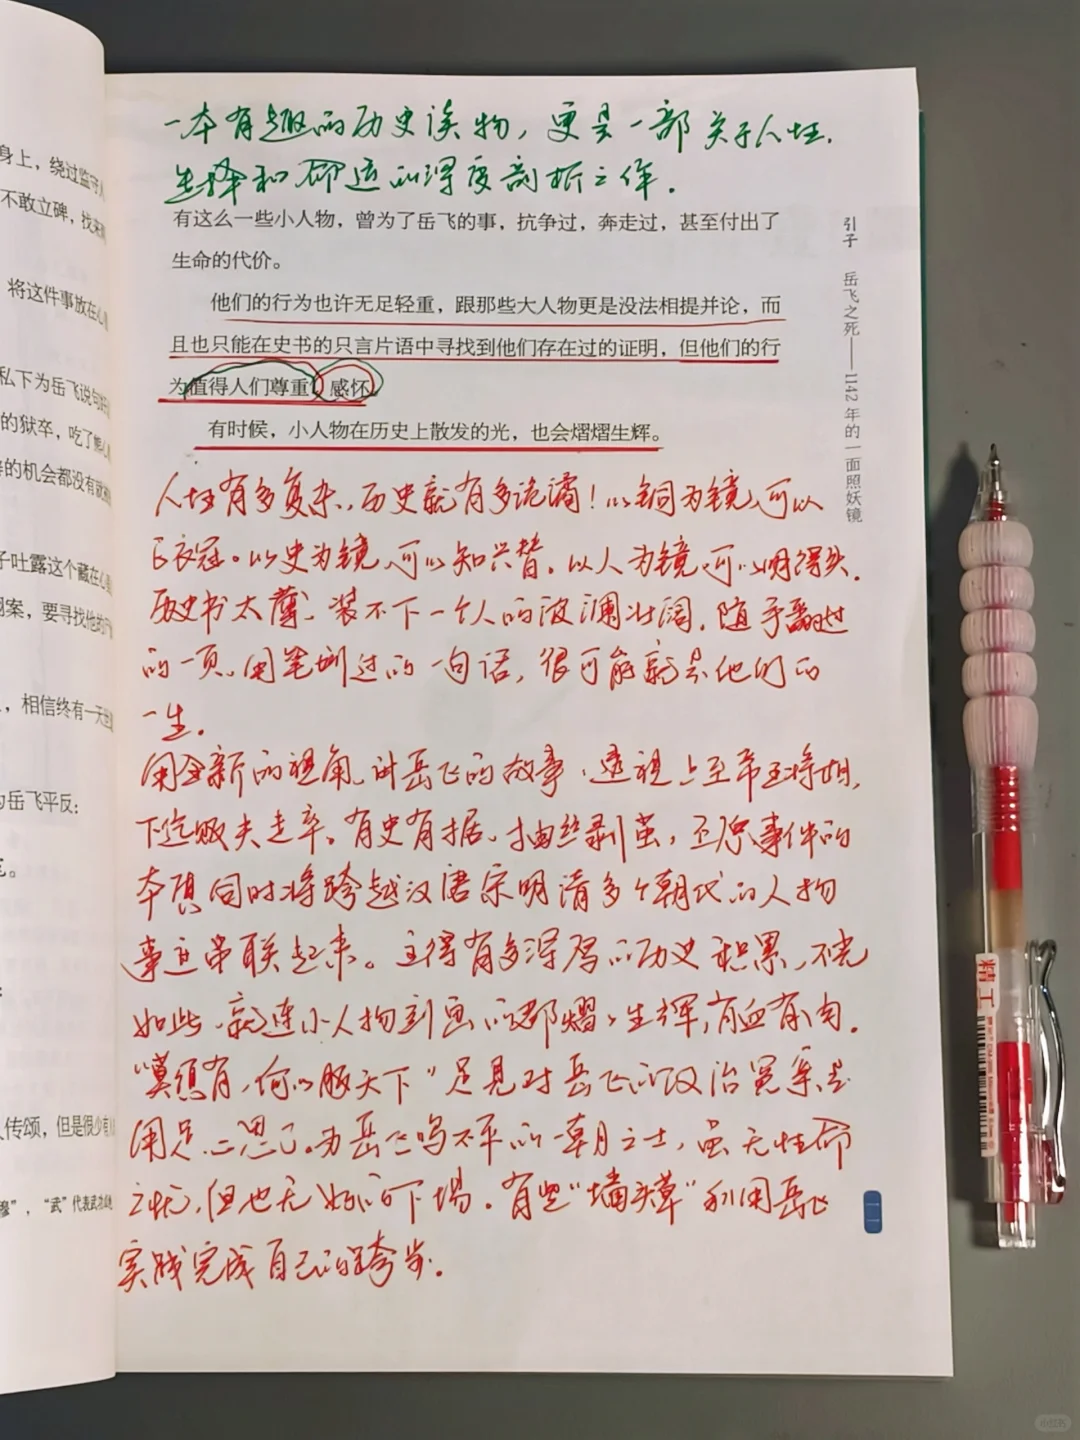 身上，绕过监守
不敢立碑，找来
将这件事放在心
私下为岳飞说句
的狱卒，吃了熊心
的机会都没有
子吐露这个藏在心
案，要寻找他的
，相信终有一天
岳飞平反：
传颂，但是很少有
穆”，“武”代表武
一本有趣的历史读物，更是一部关于人性、
选择和命运的深度剖析之作。
有这么一些小人物，曾为了岳飞的事，抗争过，奔走过，甚至付出了
生命的代价。
他们的行为也许无足轻重，跟那些大人物更是没法相提并论，而
且也只能在史书的只言片语中寻找到他们存在过的证明，但他们的行
为值得人们尊重、感怀。
有时候，小人物在历史上散发的光，也会熠熠生辉。
人性有多复杂，历史就有多诡谲！以铜为镜，可以
正衣冠。以史为镜，可以知兴替。以人为镜，可以明得失。
历史书太薄，装不下一个人的波澜壮阔，随手翻过
的一页，用笔划过的一句话，很可能就是他们的
一生。
用全新的视角，讲岳飞的故事，透视上至帝王将相，
下迄贩夫走卒。有史有据，抽丝剥茧，还原事件的
本真，同时将跨越汉唐宋明清多个朝代的人物
事迹串联起来。这得有多深厚的历史积累，不光
如此，就连小人物刻画的都熠々生辉，有血有肉。
“莫须有，何以服天下”足见对岳飞的政治冤案是
用足心思了。为岳飞鸣不平的一朝之士，虽无性命
之忧，但也无好的下场。有些“墙头草”利用岳飞
实践完成自己的跨步。
引子 岳飞之死——1142年的一面照妖镜
一一
精工
小红书